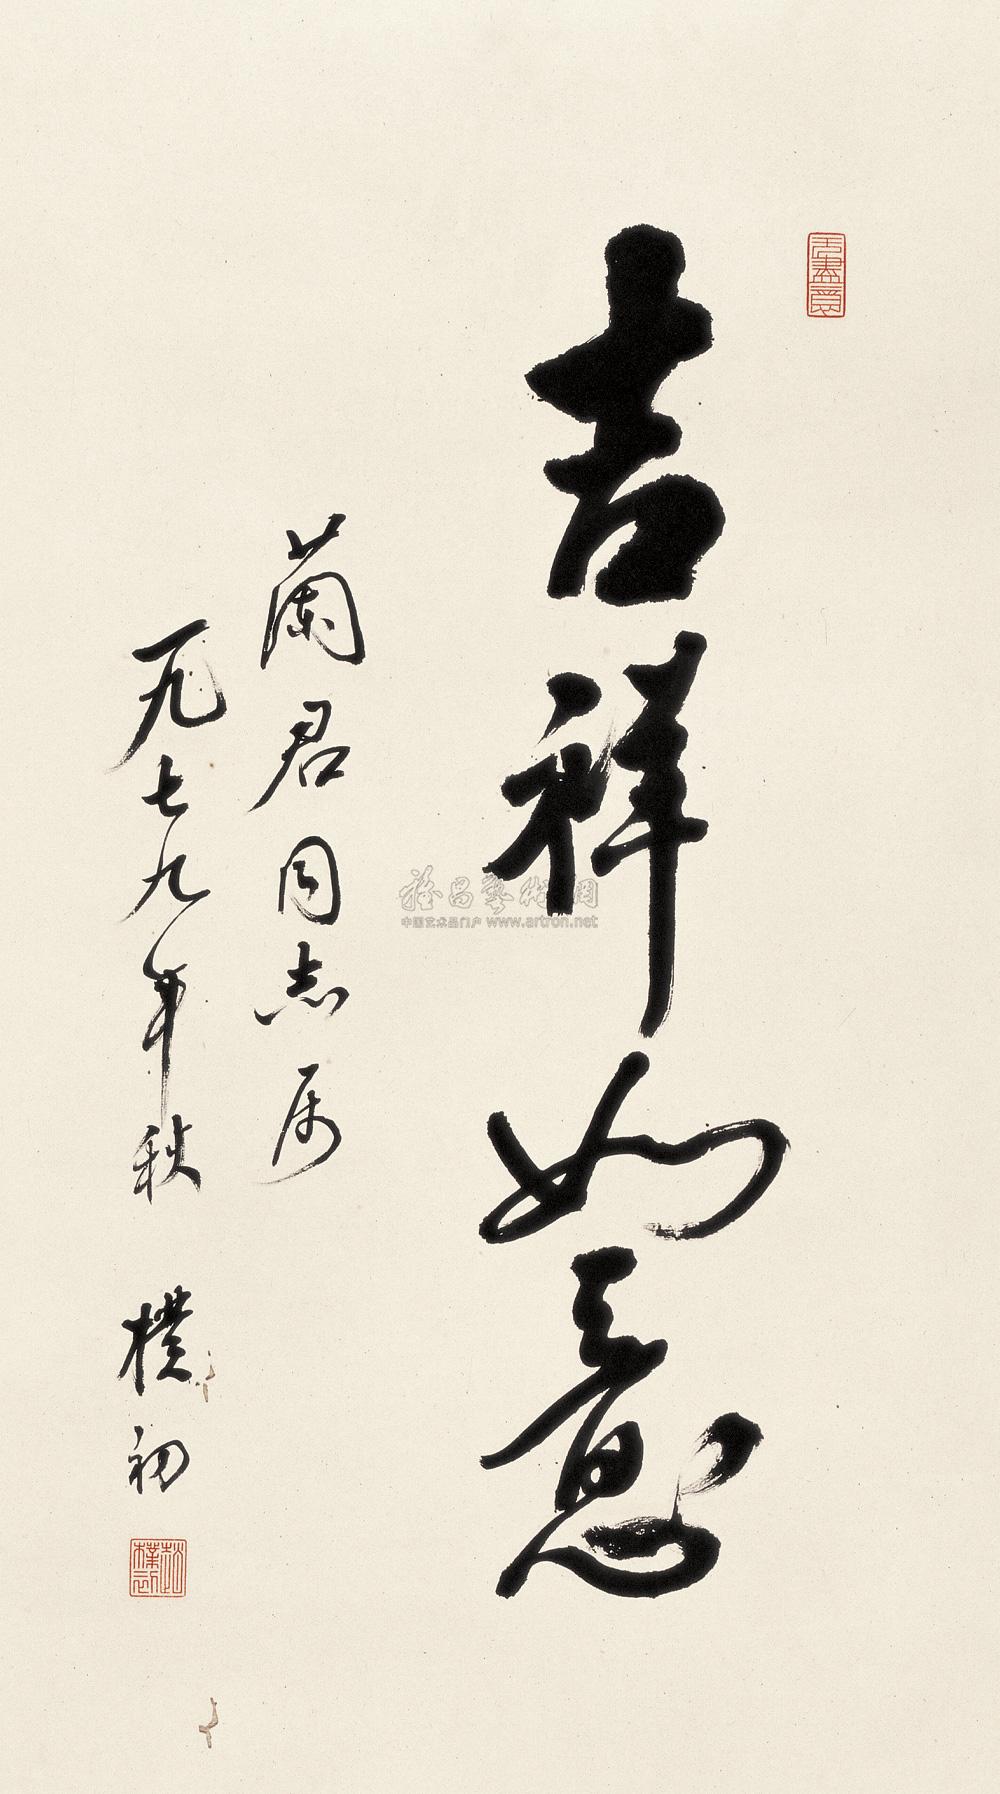 无尽意
吉祥如意
蘭君同志属
一九七九年秋 樸初
趙樸初
雅昌藝術网
中国艺术品门户 www.artron.net